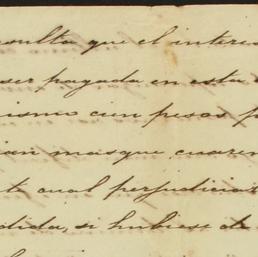 sulta que el interes
ser pagada en esta
ismo cien pesos p
ian mas que cuaren
te cual perjudicia
dida, si hubiese de